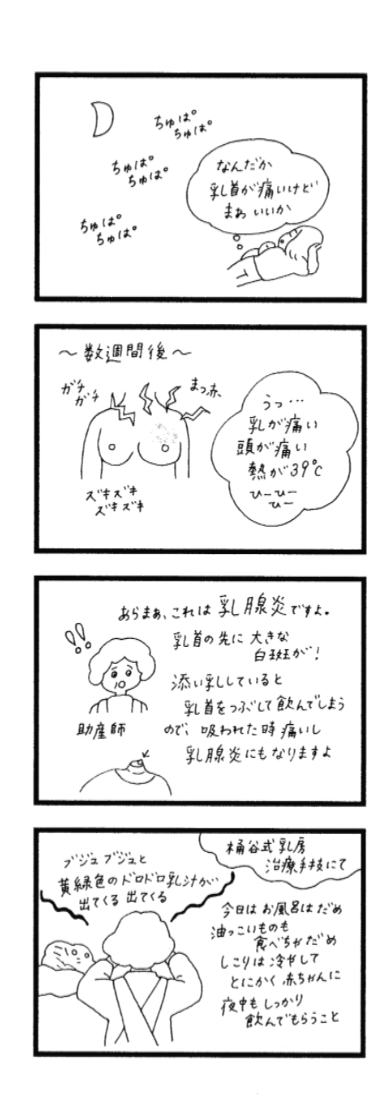 ちゅぱ°
ちゅぱ°
ちゅぱ°
ちゅぱ°
ちゅぱ°
ちゅぱ°
なんだか
乳首が痛いけど
まぁいいか
～数週間後～
ガチ
ガチ
まっ赤、
ズキズキ
ズキズキ
うっ…
乳が痛い
頭が痛い
熱が39℃
ひーひー
ひー
あらまぁ、これは乳腺炎ですよ。
乳首の先に大きな
白斑が!
添い乳ししていると
乳首をつぶして飲んでしまう
ので、吸われた時痛いし
乳腺炎にもなりますよ
!!
助産師
桶谷式乳房
治療手技にて
ブジュブジュと
黄緑色のドロドロ乳汁が
出てくる出てくる
今日はお風呂はだめ
油っこいものも
食べちゃだめ
しこりは冷やして
とにかく赤ちゃんに
夜中もしっかり
飲んでもらうこと